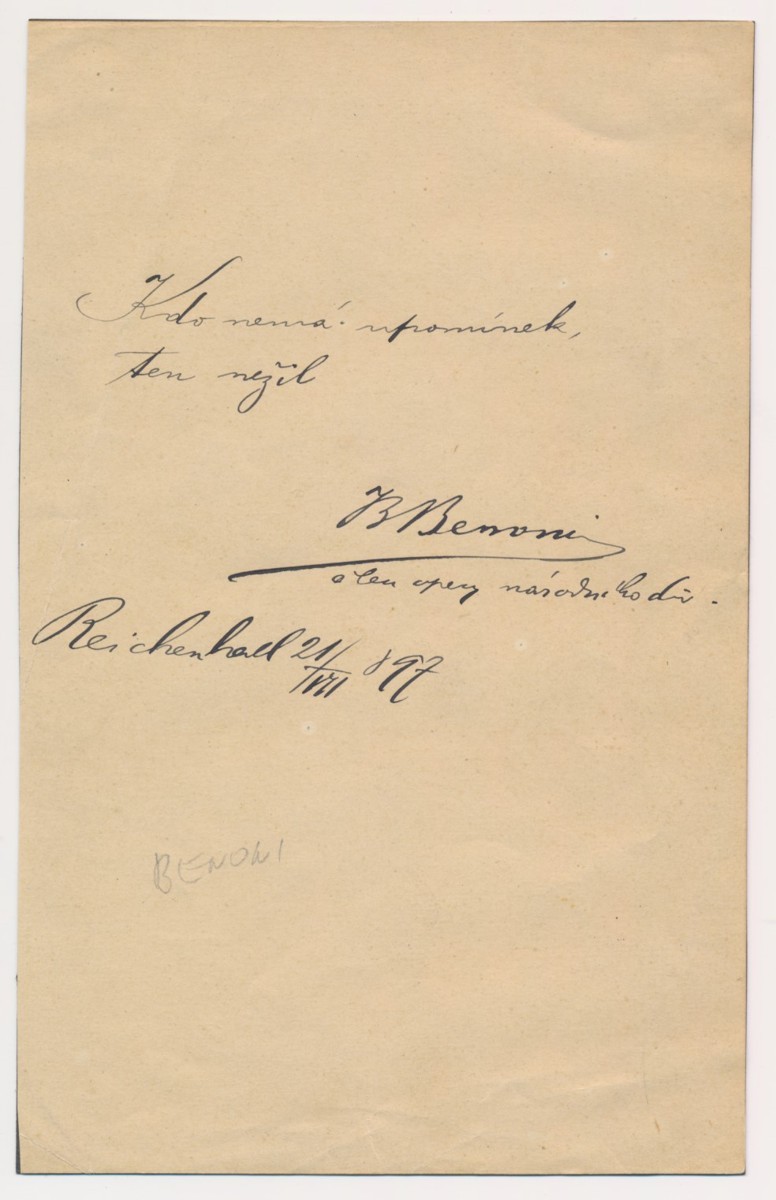 Kdo nemá upomínek,
ten nežil
B Benoni
člen opery národního div.
Reichenhall 21/VII 897
BENONI